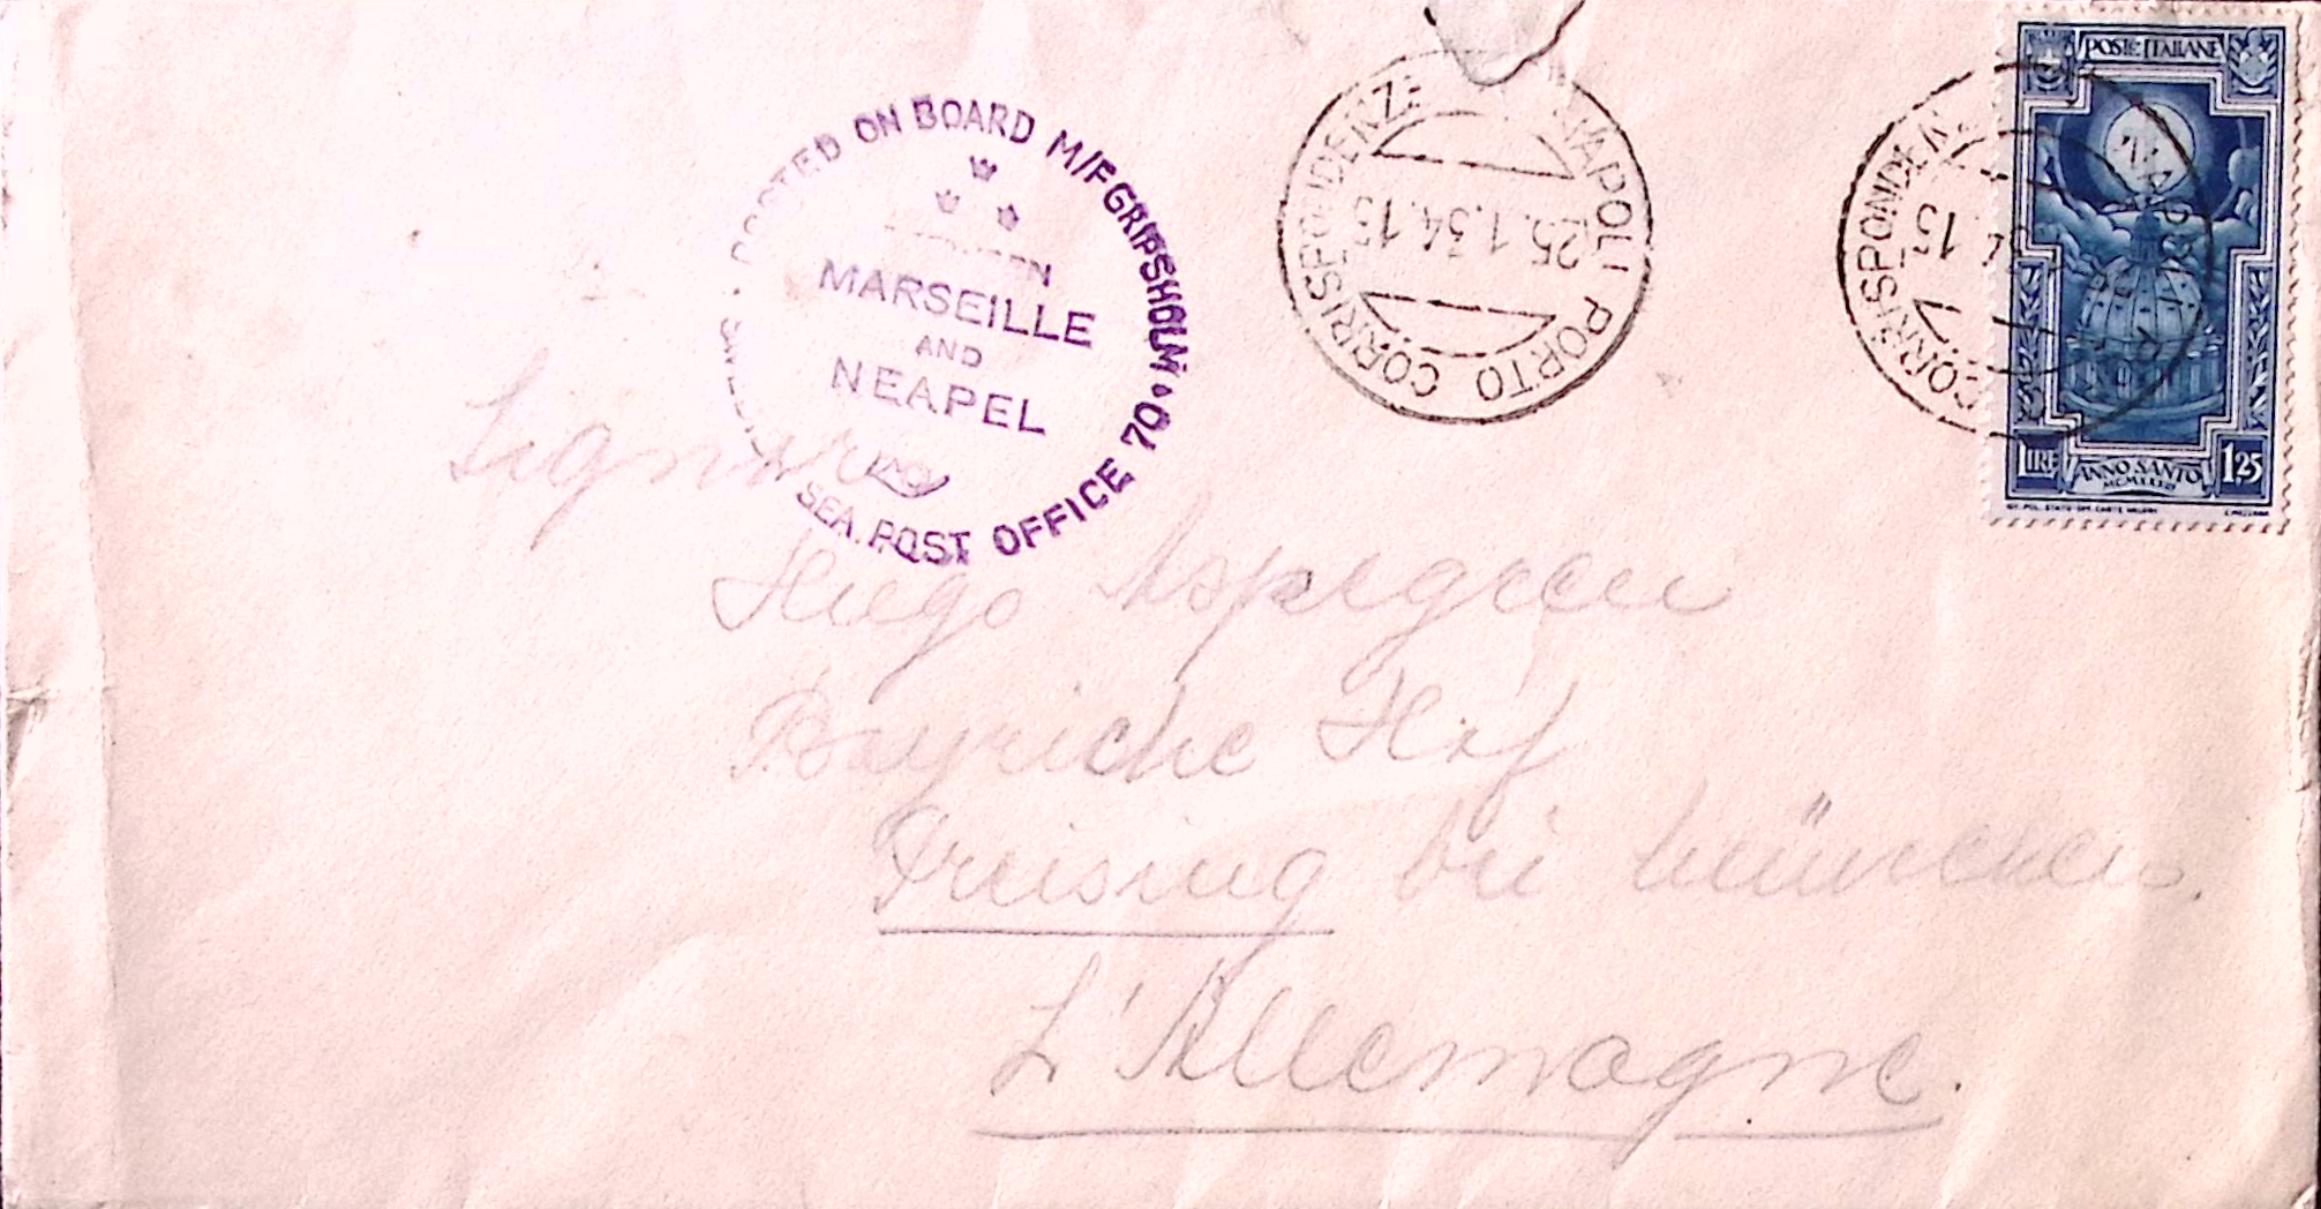 POSTED ON BOARD M/F GRIPSHOLM
SEA POST OFFICE 70.
MARSEILLE
AND
NEAPEL
NAPOLI PORTO CORRISPONDENZE
25.1.34.15
NAPOLI PORTO CORRISPONDENZE
POSTE ITALIANE
LIRE
ANNO SANTO
1,25
Signor
Hugo Aspegren
Bayriche Hof
Freising bei München.
L'Allemagne.